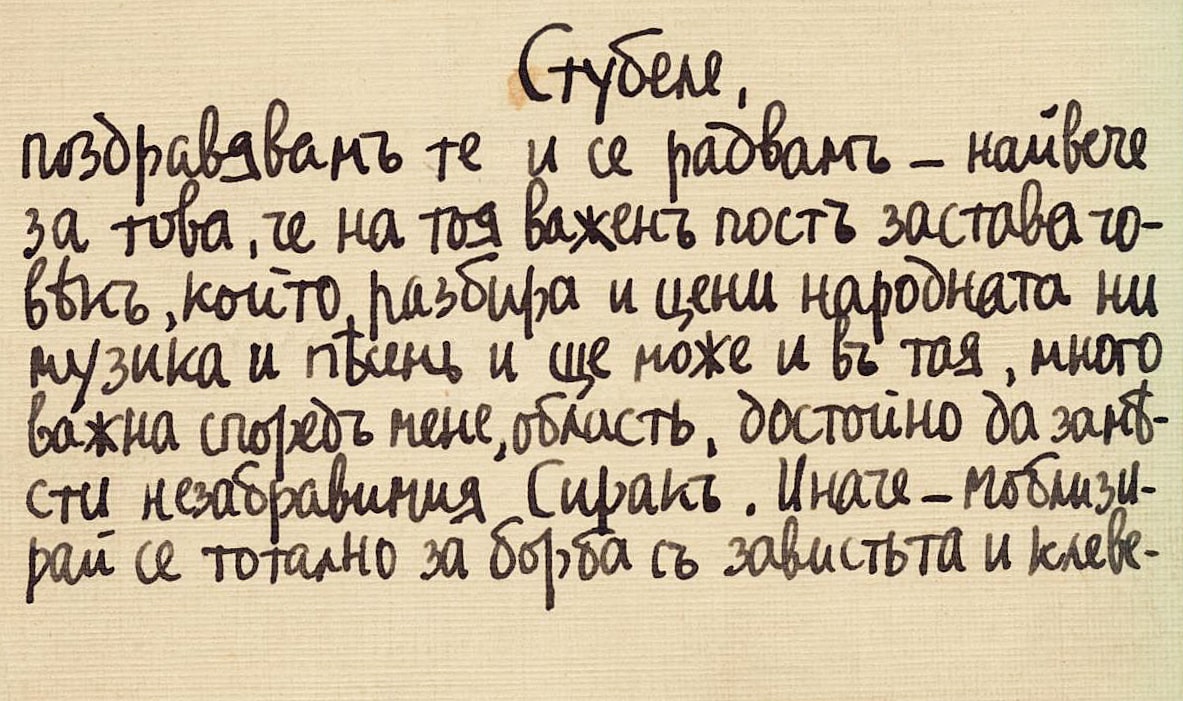 Стубеле,
поздравявамъ те и се радвамъ – найвече
за това, че на тоя важенъ постъ застава чо-
вѣкъ, който разбира и цени народната ни
музика и пѣсень и ще може и въ тая, много
важна споредъ мене, область, достойно да замѣ-
сти незабравимия Сиракъ. Иначе – моблизи-
рай се тотално за борба съ завистьта и клеве-